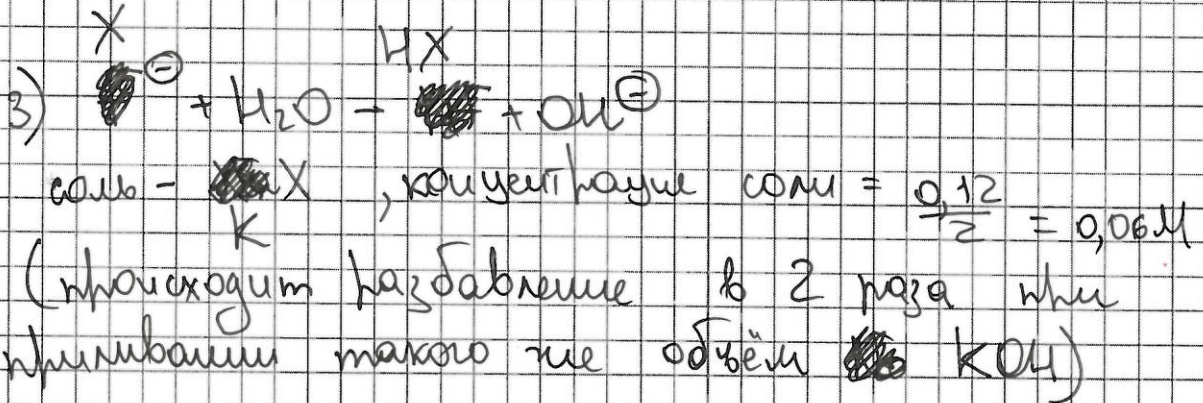 3) X⊖ + H₂O – HX + OH⊖
соль – KX, концентрация соли = 0,12/2 = 0,06М
(происходит разбавление в 2 раза при
приливании такого же объём KOH)